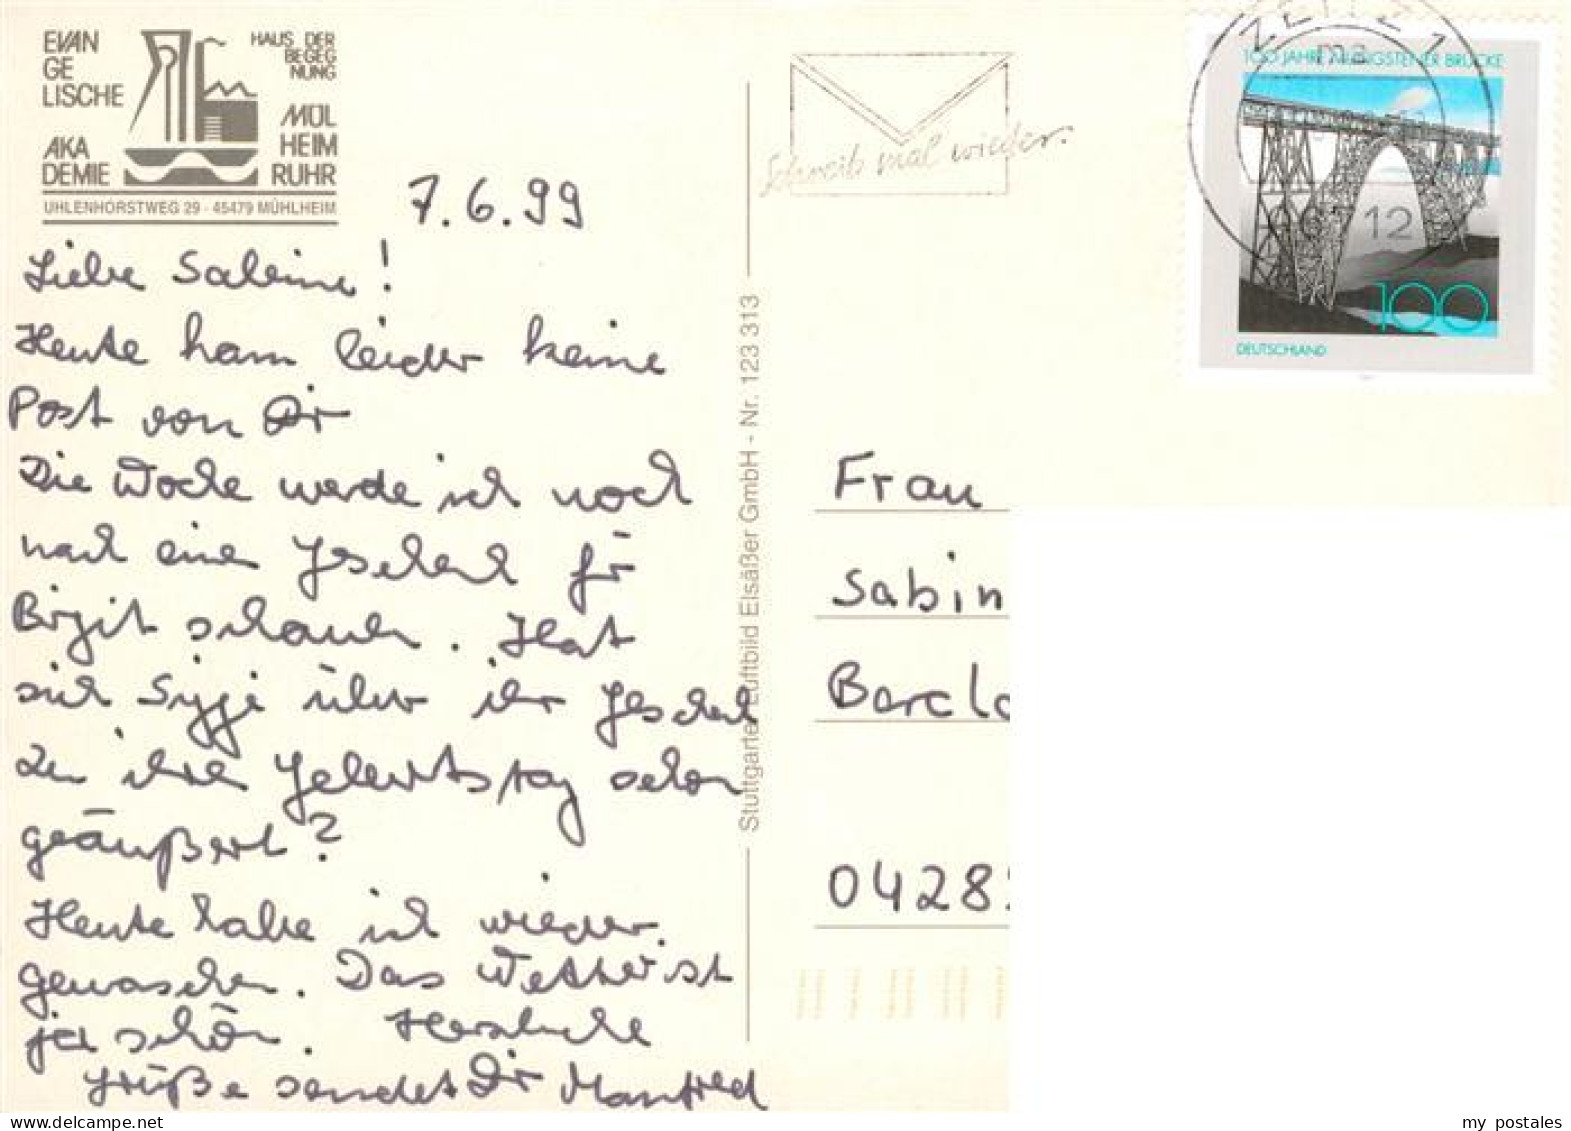 EVAN
GE
LISCHE
AKA
DEMIE
HAUS DER
BEGEG
NUNG
MÜL
HEIM
RUHR
UHLENHORSTWEG 29 · 45479 MÜHLHEIM
7.6.99
Liebe Sabine!
Heute kam leider keine
Post von Dir
Die Woche werde ich noch
nach einem Geschenk für
Birgit schauen. Hat
sich Sigge über ihr Geschenk
zu ihrem Geburtstag schon
geäußert?
Heute habe ich wieder
gewaschen. Das Wetter ist
ja schön. Herzliche
Grüße sendet Dir Manfred
Stuttgarter Luftbild Elsäßer GmbH - Nr. 123 313
Schreib mal wieder.
ZEITZ 1
ma
12
100 JAHRE MÜNGSTENER BRÜCKE
100
DEUTSCHLAND
Frau
Sabin
Barclo
0428
my_postales